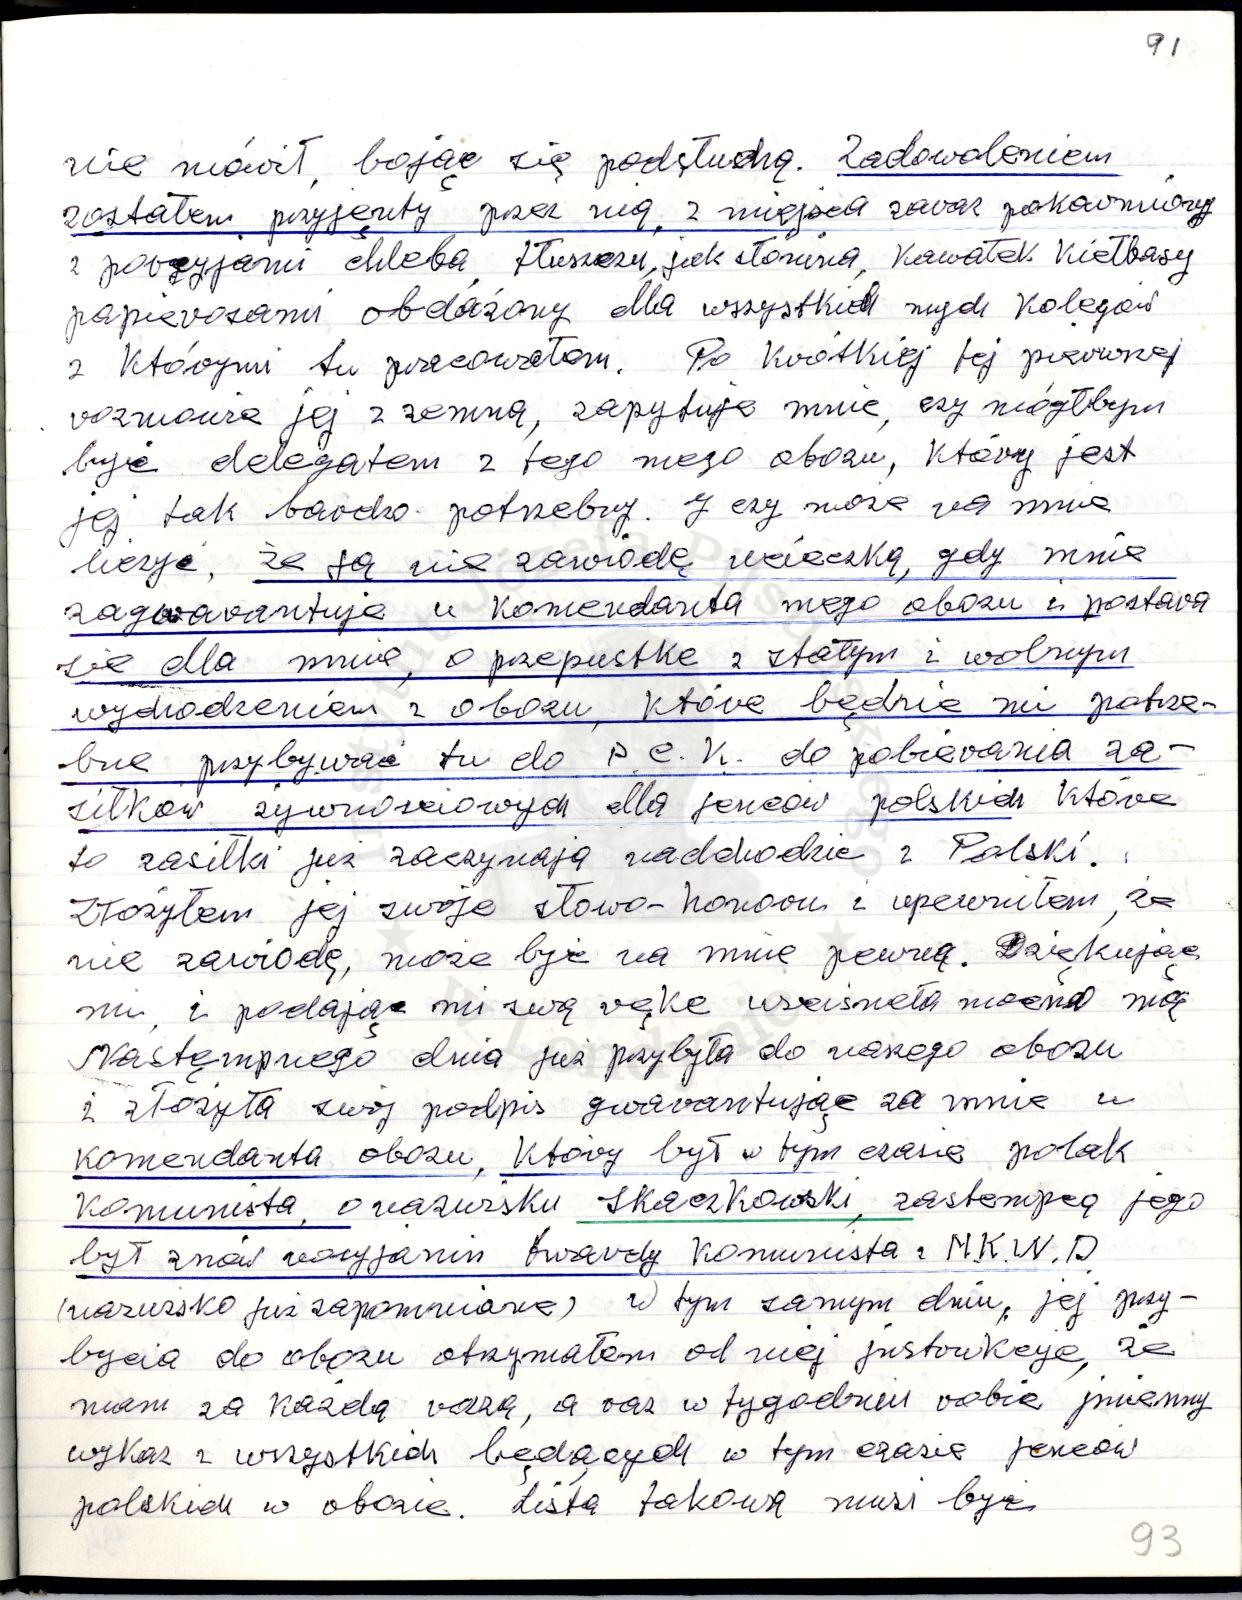 91
nie mówił, bojąc się podęłuchą. Zadowoleniem
zostałem, przyjęnty przez nią, z miejsca zaraz pokarmiony
z porcyjami chleba, tłuszczu, jak słonina, kawałek kiełbasy
papierosami obdażony dla wszystkich mych kolegów
z którymi tu pracowałem. Po krótkiej tej pierwszej
rozmowie jej z zemną, zapytuje mnie, czy mógłbym
być delegatem z tego mego obozu, który jest
jej tak bardzo potrzebny. I czy może na mnie
liczyć, że ją nie zawiodę ucieczką, gdy mnie
zagwarantuje u komendanta mego obozu i postara
się dla mnie, o przepustkę z stałym i wolnym
wychodzeniem z obozu, które będzie mi potrze-
bne przybywać tu do P.C.K. do pobierania za-
siłków żywnościowych dla jeńców polskich które
to zasiłki już zaczynają naddchodzić z Polski.
Złożyłem jej swoje słowo-honoru i upewniłem, że
nie zawiodę, może być na mnie pewną. Dziękując
mi, i podając mi swą rękę uścisneła mocno mą
Nastęmpnego dnia już przybyła do naszego obozu
i złożyła swój podpis gwarantując za mnie u
komendanta obozu, który był w tym czasie polak
komunista, o nazwisku Skaczkowski, zastempcą jego
był znów rosyjanin twardy komunista z N.K.W.D
(nazwisko już zapomniane) W tym samym dniu, jej przy-
bycia do obozu otrzymałem od niej justrukcje, że
mam za każdą razą, a raz w tygodniu robić jmienny
wykaz z wszystkich będących w tym czasie jeńców
polskich w obozie. Listą takową musi być
93
Instytut Józefa Piłsudskiego
w Londynie